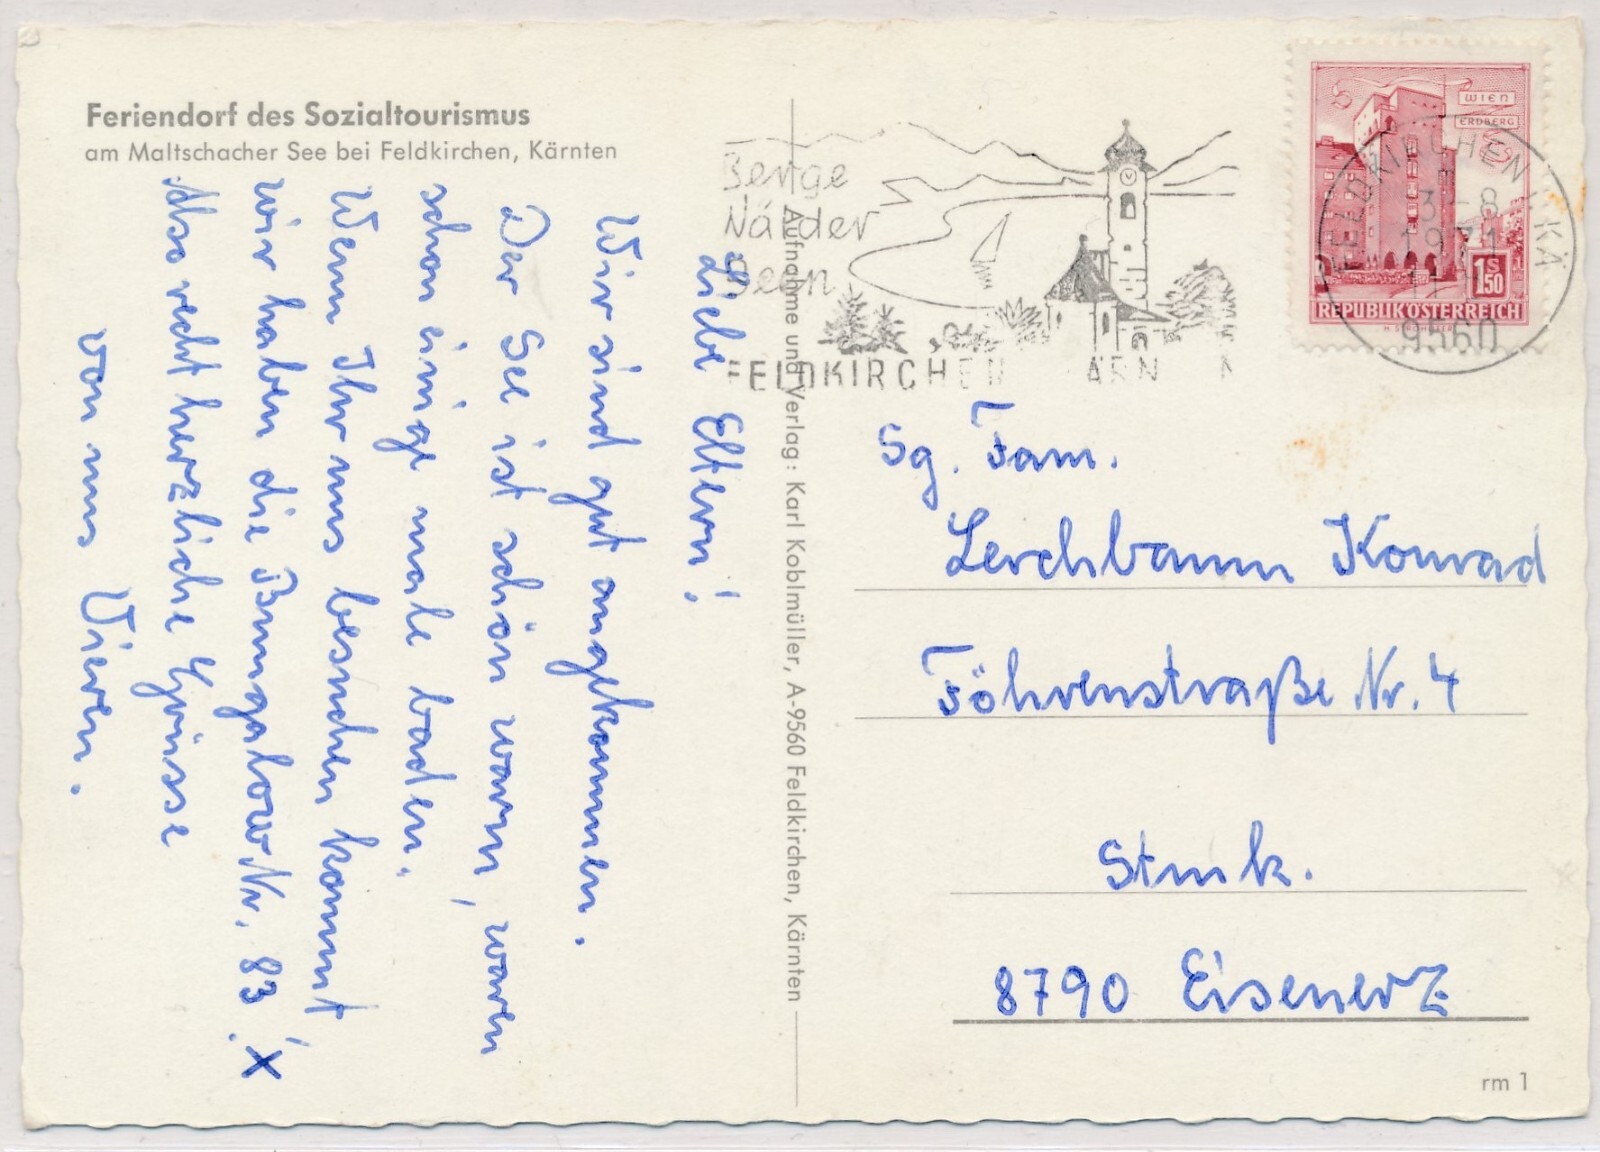 Feriendorf des Sozialtourismus
am Maltschacher See bei Feldkirchen, Kärnten
Liebe Eltern!
Wir sind gut angekommen.
Der See ist schön warm, waren
schon einige male baden.
Wenn Ihr uns besuchen kommt
wir haben die Bungalow Nr. 83! X
Also recht herzliche Grüsse
von uns Vieren.
Aufnahme und Verlag: Karl Koblmüller, A-9560 Feldkirchen, Kärnten
Berge
Wälder
Seen
FELDKIRCHEN KÄRN
WIEN
ERDBERG
S
150
REPUBLIK ÖSTERREICH
FELDKIRCHEN I. KÄ
3-8
1971
9560
Sg. Fam.
Lerchbaum Konrad
Föhrenstraße Nr. 4
Stmk.
8790 Eisenerz
rm 1